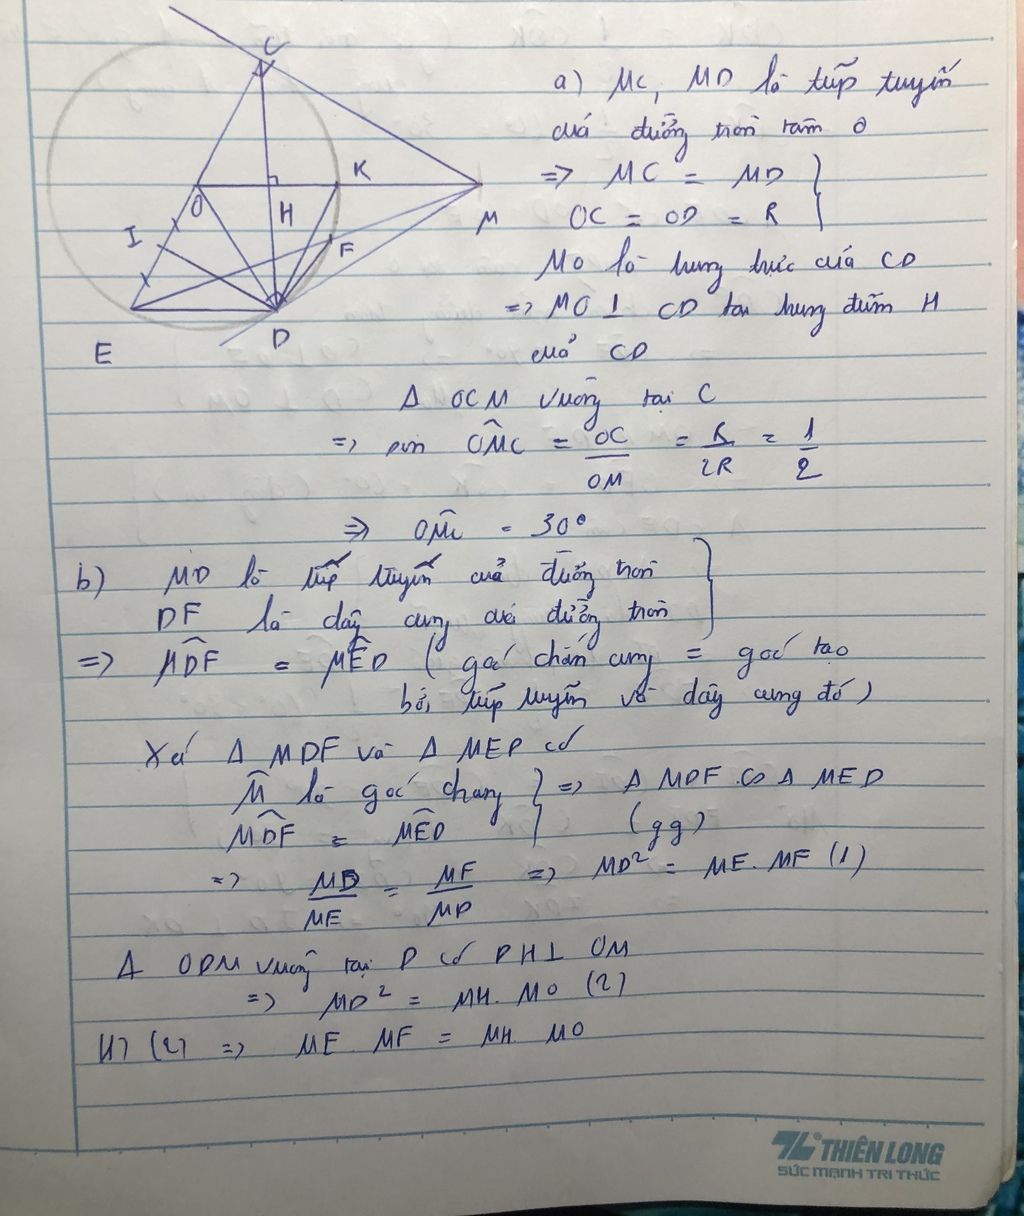 C
O
H
K
M
I
F
E
D
a) MC, MD là tiếp tuyến
của đường tròn tâm O
=> MC = MD
OC = OD = R
MO là trung trực của CD
=> MO ⊥ CD tại trung điểm H
của CD
Δ OCM vuông tại C
=> sin OMC = OC/OM = R/2R = 1/2
=> OMC = 30°
b) MD là tiếp tuyến của đường tròn
DF là dây cung của đường tròn
=> MDF = MED ( góc chắn cung = góc tạo
bởi tiếp tuyến và dây cung đó )
Xét Δ MDF và Δ MED có
M là góc chung => Δ MDF ∽ Δ MED
MDF = MED (gg)
=> MD/ME = MF/MD => MD² = ME. MF (1)
Δ ODM vuông tại D có DH ⊥ OM
=> MD² = MH. MO (2)
(1) (2) => ME. MF = MH. MO
THIÊN LONG
SỨC MẠNH TRI THỨC